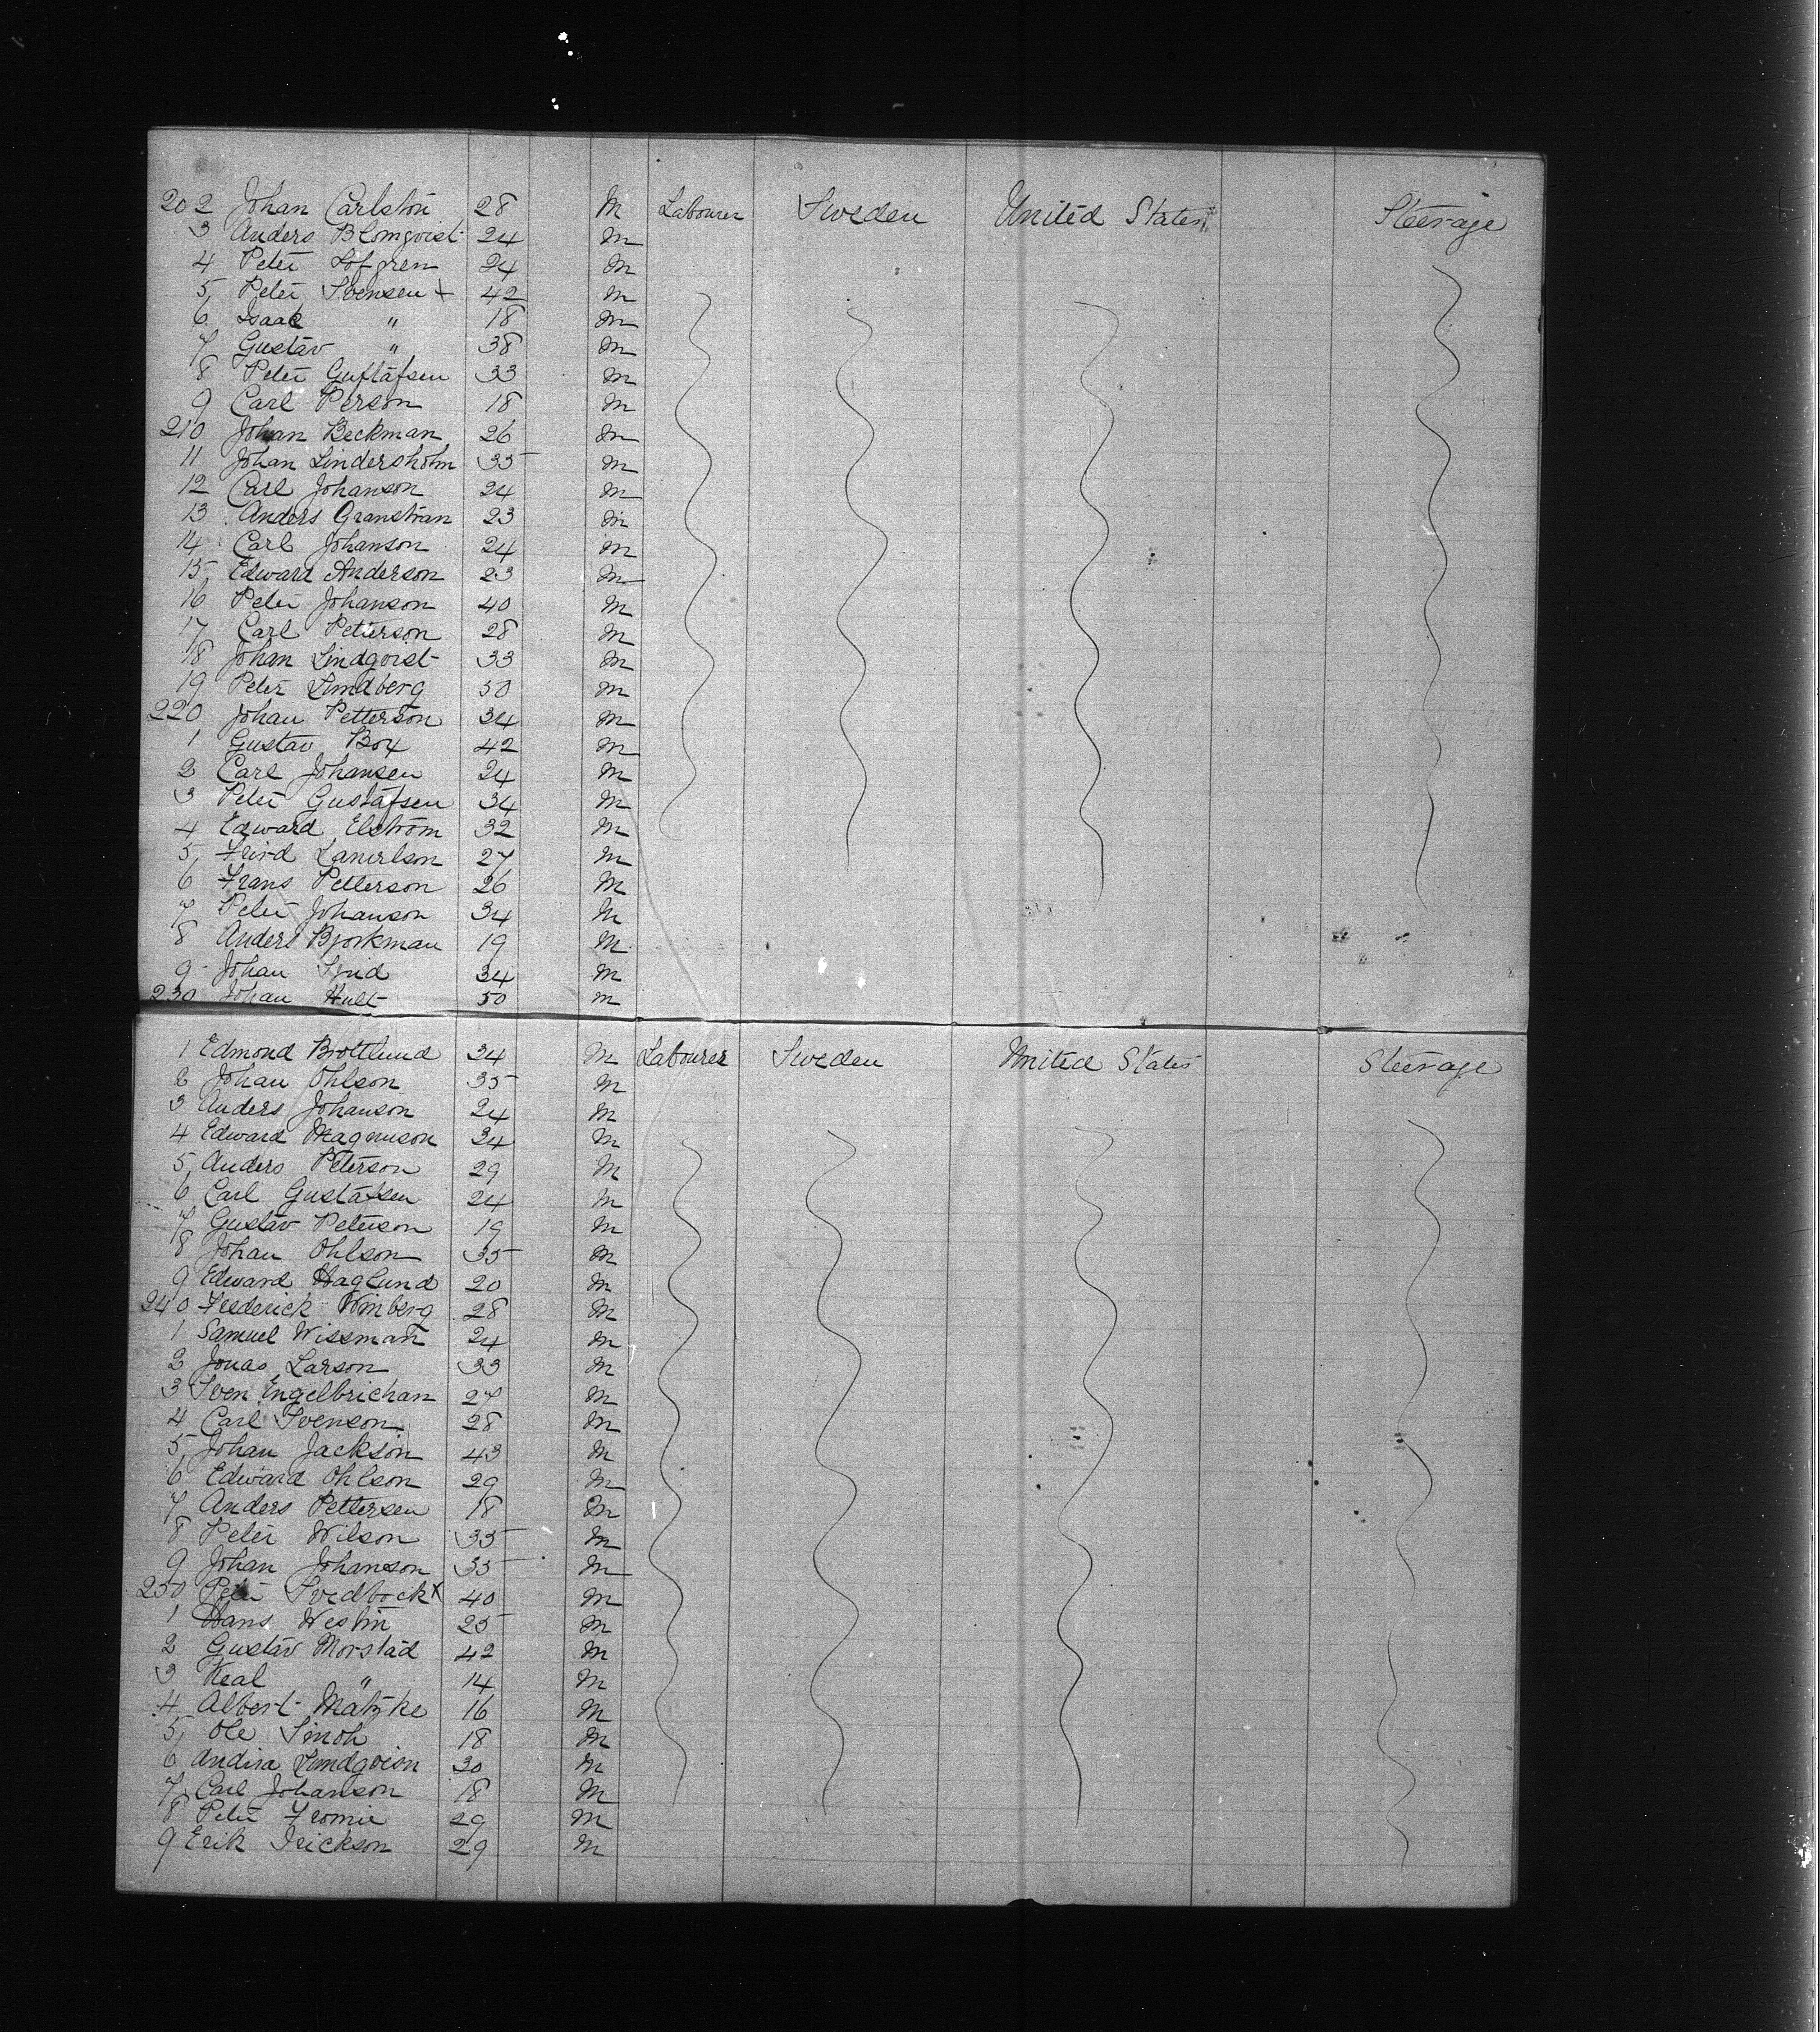 202 Johan Carlston 28 M Labourer Sweden United States Steerage
3 Anders Blomqvist 24 M
4 Peter Lofgren 24 M
5 Peter Svensen x 42 M
6 Isaak " 18 M
7 Gustav " 38 M
8 Peter Guftafsen 33 M
9 Carl Person 18 M
210 Johan Beckman 26 M
11 Johan Lindersholm 35 M
12 Carl Johanson 24 M
13 Anders Granstran 23 M
14 Carl Johanson 24 M
15 Edward Anderson 23 M
16 Peter Johanson 40 M
17 Carl Petterson 28 M
18 Johan Lindqvist 33 M
19 Peter Lundberg 30 M
220 Johan Petterson 34 M
1 Gustav Box 42 M
2 Carl Johansen 24 M
3 Peter Gustafsen 34 M
4 Edward Elstrom 32 M
5 27 M
6 Frans Petterson 26 M
7 Peter Johanson 34 M
8 Anders Bjorkman 19 M
9 Johan 34 M
230 Johan Hult 50 M
1 Edmond Brottlund 34 M Labourer Sweden United States Steerage
2 Johan Ohlson 35 M
3 Anders Johanson 24 M
4 Edward Magnuson 34 M
5 Anders Peterson 29 M
6 Carl Gustafsen 24 M
7 Gustav Peterson 19 M
8 Johan Ohlson 35 M
9 Edward Haglund 20 M
240 Frederick Winberg 28 M
1 Samuel Wissman 24 M
2 Jonas Larson 33 M
3 Sven Engelbrichan 27 M
4 Carl Svenson 28 M
5 Johan Jackson 43 M
6 Edward Ohlson 29 M
7 Anders Pettersen 18 M
8 Peter Wilson 35 M
9 Johan Johanson 35 M
250 Peter Svedbock x 40 M
1 Hans Westin 25 M
2 Gustav Morstad 42 M
3 " 14 M
4 Albert Matzke 16 M
5 Ole Simoh 18 M
6 30 M
7 Carl Johanson 18 M
8 Peter Fromie 29 M
9 Erik Irickson 29 M